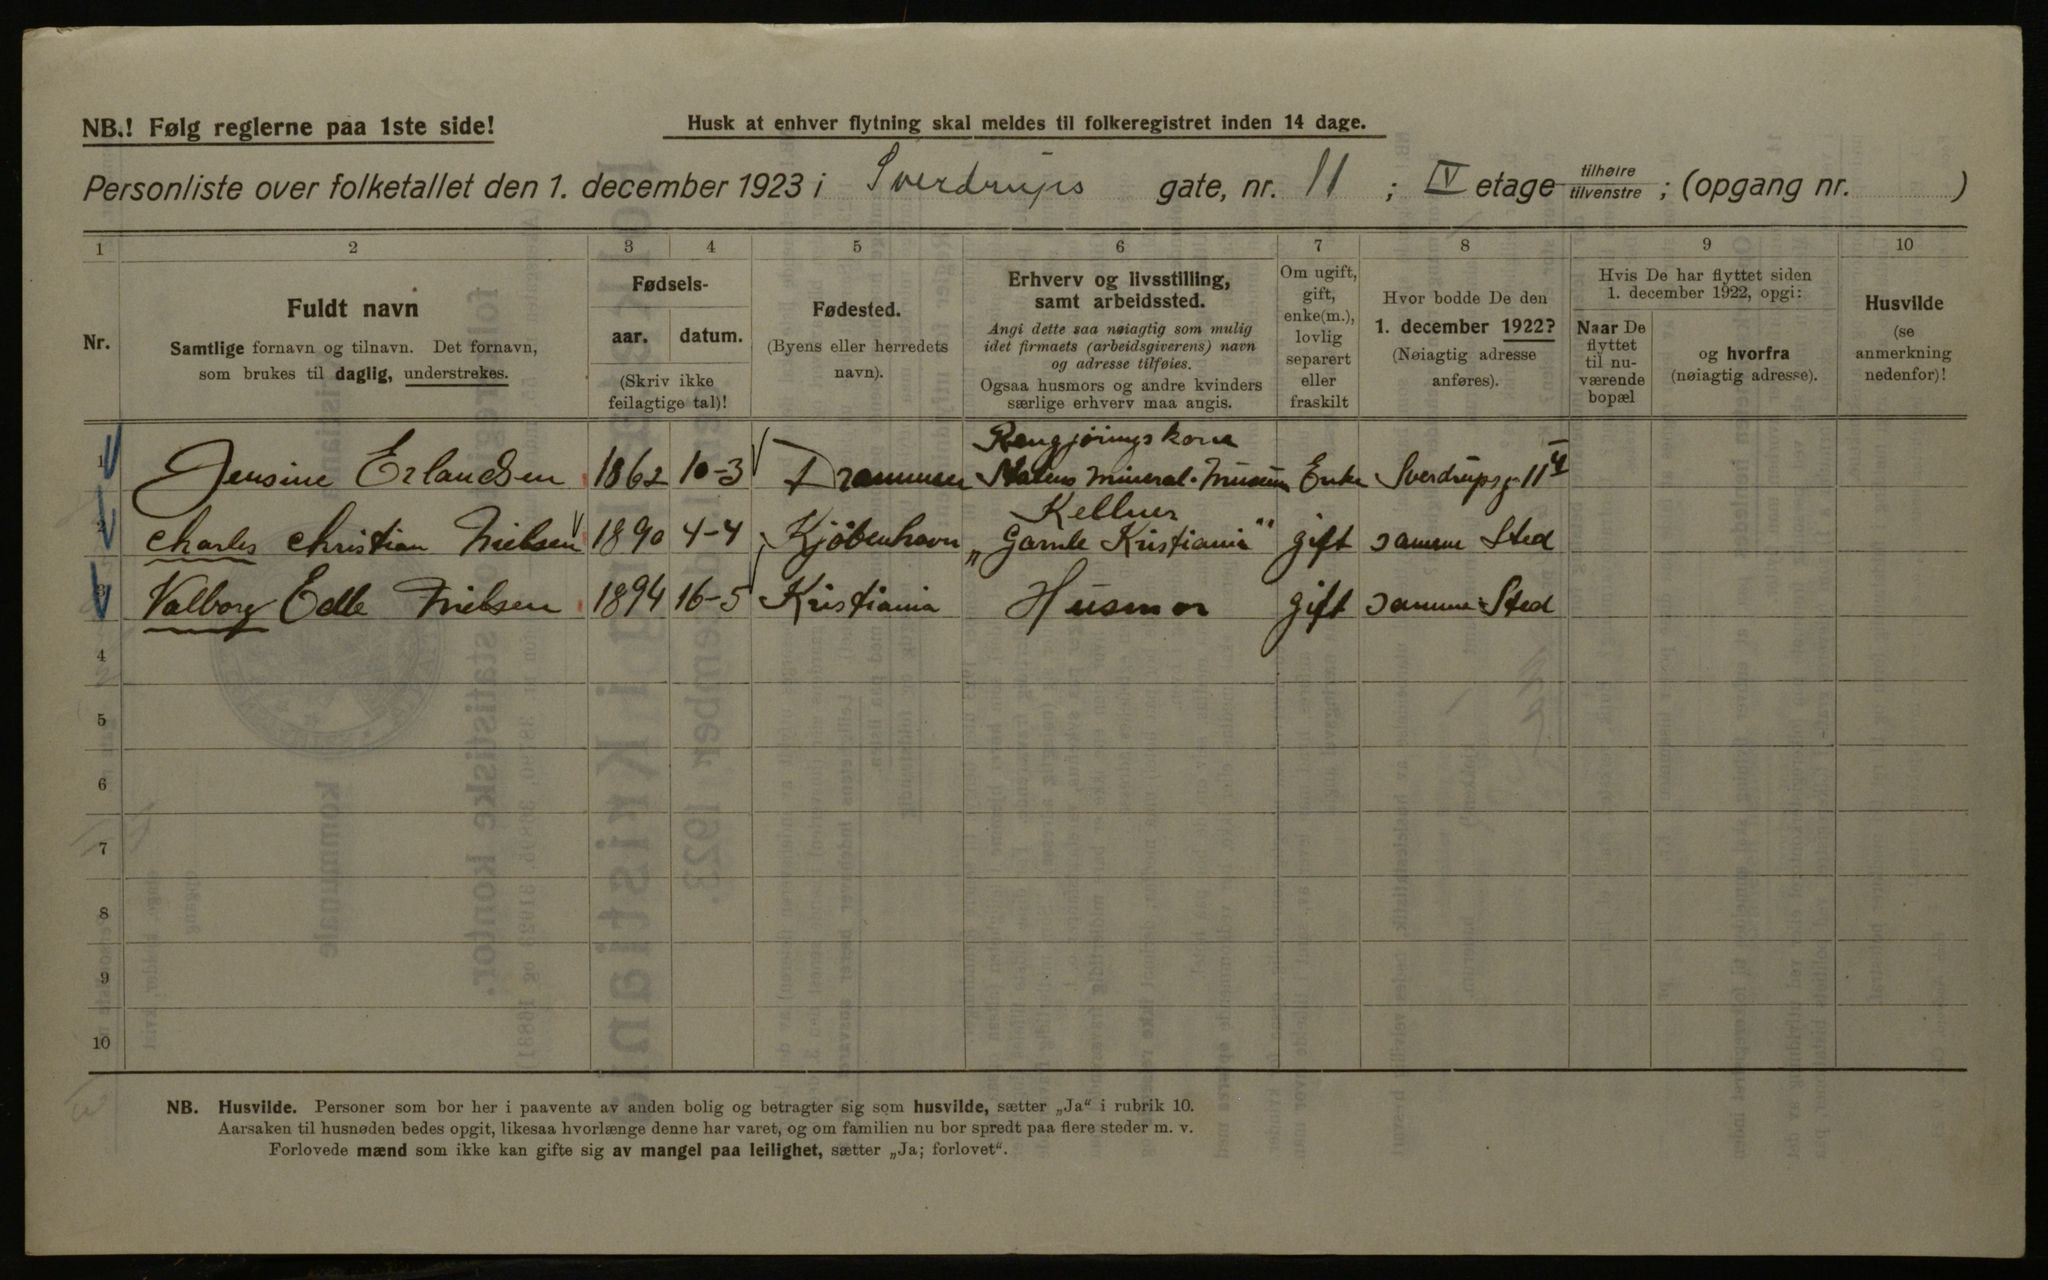 NB.! Følg reglerne paa 1ste side!
Husk at enhver flytning skal meldes til folkeregistret inden 14 dage.
Personliste over folketallet den 1. december 1923 i Sverdrups gate, nr. 11 ; IV etage tilhøire tilvenstre ; (opgang nr. )
1 2 3 4 5 6 7 8 9 10
Nr.
Fuldt navn
Samtlige fornavn og tilnavn. Det fornavn,
som brukes til daglig, understrekes.
Fødsels-
aar. datum.
(Skriv ikke
feilagtige tal)!
Fødested.
(Byens eller herredets
navn).
Erhverv og livsstilling,
samt arbeidssted.
Angi dette saa nøiagtig som mulig
idet firmaets (arbeidsgiverens) navn
og adresse tilføies.
Ogsaa husmors og andre kvinders
særlige erhverv maa angis.
Om ugift,
gift,
enke(m.),
lovlig
separert
eller
fraskilt
Hvor bodde De den
1. december 1922?
(Nøiagtig adresse
anføres).
Hvis De har flyttet siden
1. december 1922, opgi:
Naar De
flyttet
til nu-
værende
bopæl
og hvorfra
(nøiagtig adresse).
Husvilde
(se
anmerkning
nedenfor)!
Rengjøringskone
1 Jensine Erlandsen 1862 10-3 Drammen Statens Mineral-Museum Enke Sverdrupsg. 11 4
Kellner
2 Charles Christian Nielsen 1890 4-4 Kjøbenhavn „Gamle Kristiania" gift samme Sted
3 Valborg Edle Nielsen 1894 16-5 Kristiania Husmor gift samme Sted
4
5
6
7
8
9
10
NB. Husvilde. Personer som bor her i paavente av anden bolig og betragter sig som husvilde, sætter „Ja" i rubrik 10.
Aarsaken til husnøden bedes opgit, likesaa hvorlænge denne har varet, og om familien nu bor spredt paa flere steder m. v.
Forlovede mænd som ikke kan gifte sig av mangel paa leilighet, sætter „Ja; forlovet".